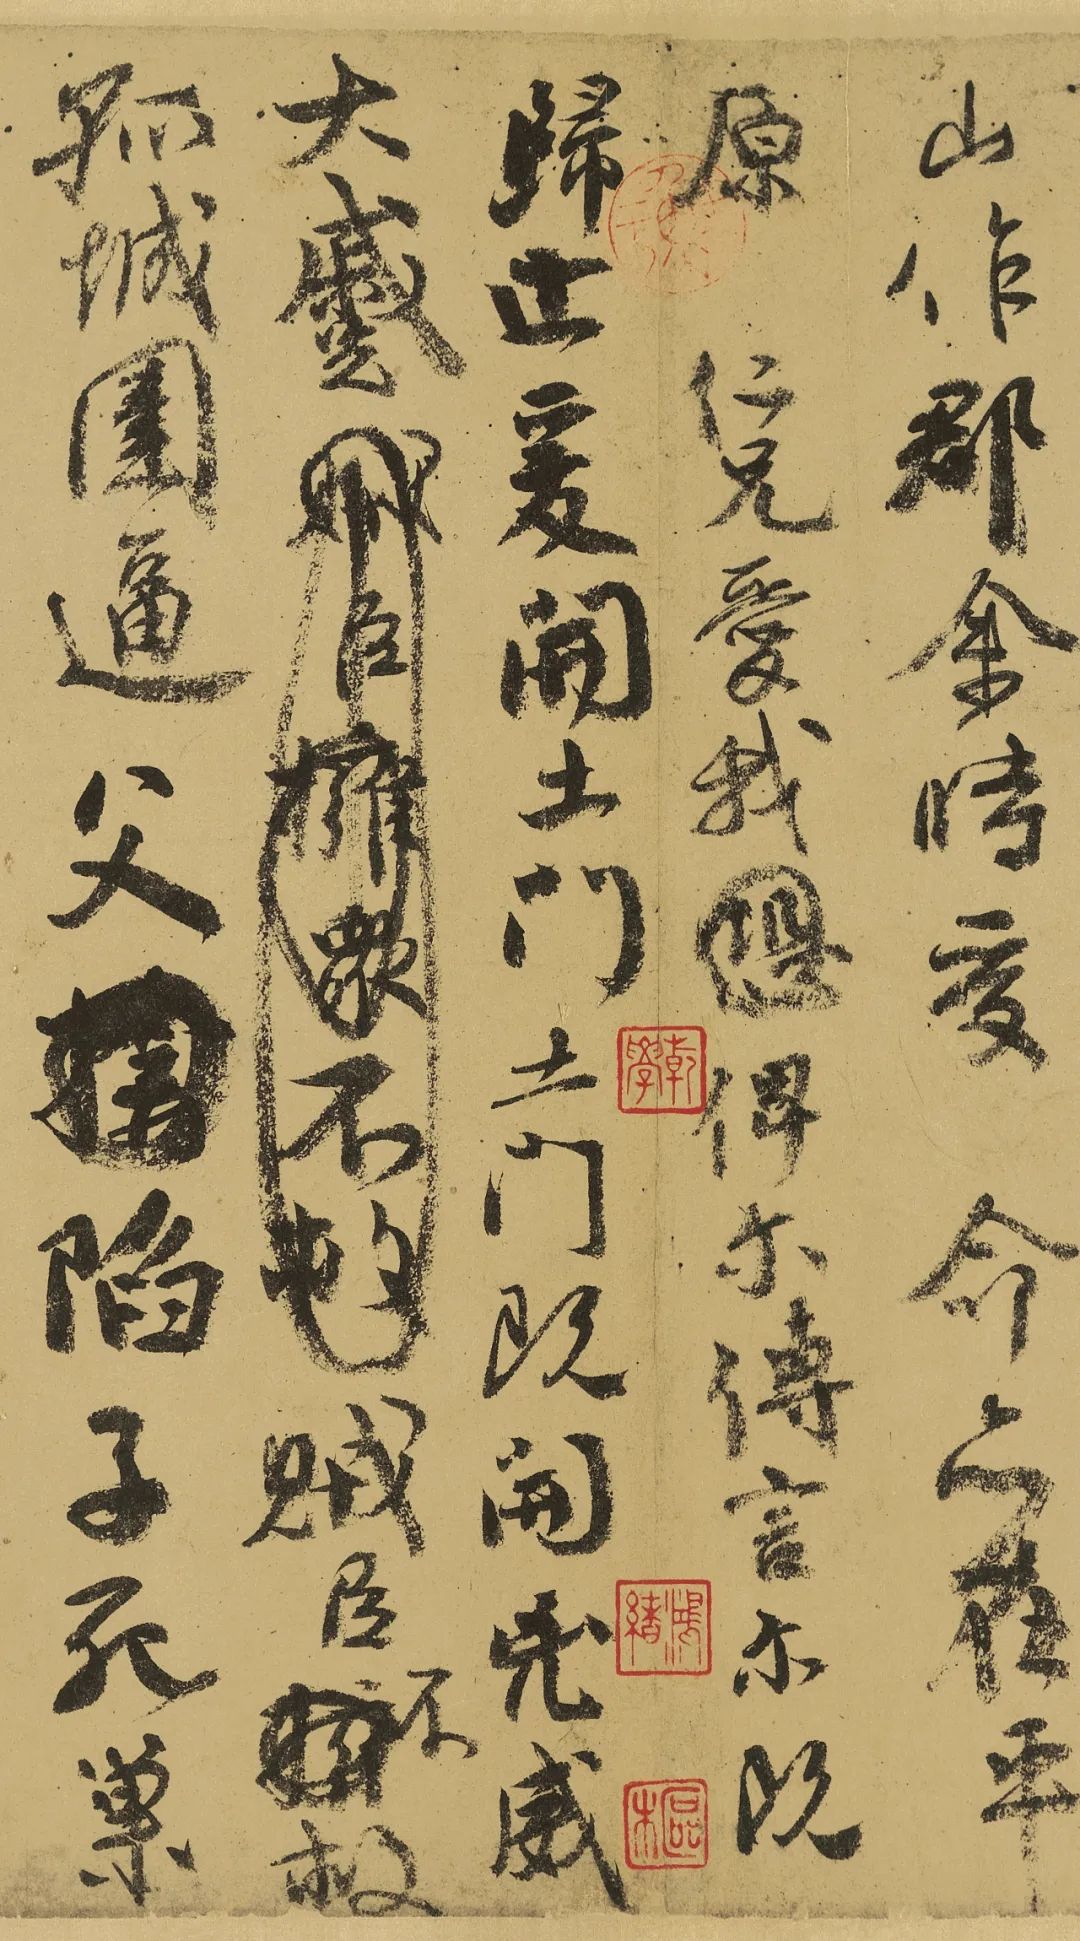 山作郡余時受命亦在平
原仁兄愛我恐俾尔傳言尔既
歸止爰開土門土門既開凶威
大蹙賊臣擁衆不救賊臣不救
孤城圍逼父陷子死巢
乾學